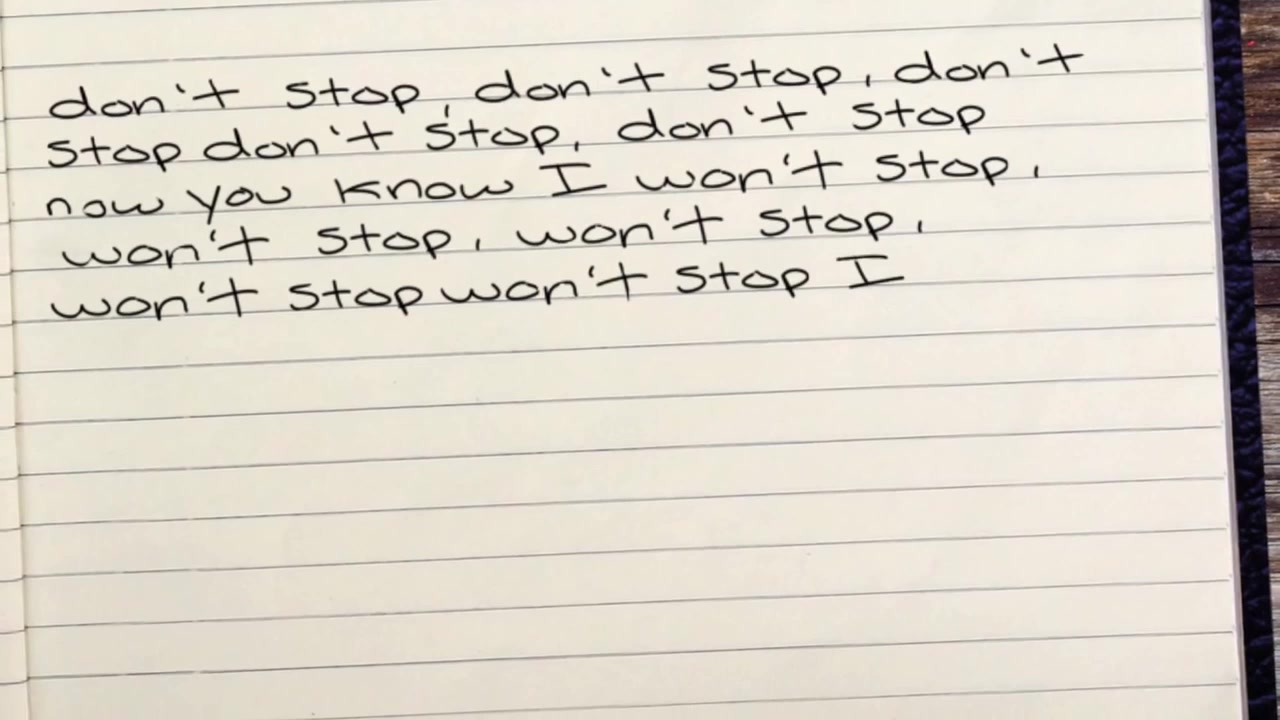 don't stop, don't stop, don't
stop don't stop, don't stop
now you know I won't stop,
won't stop, won't stop,
won't stop won't stop I